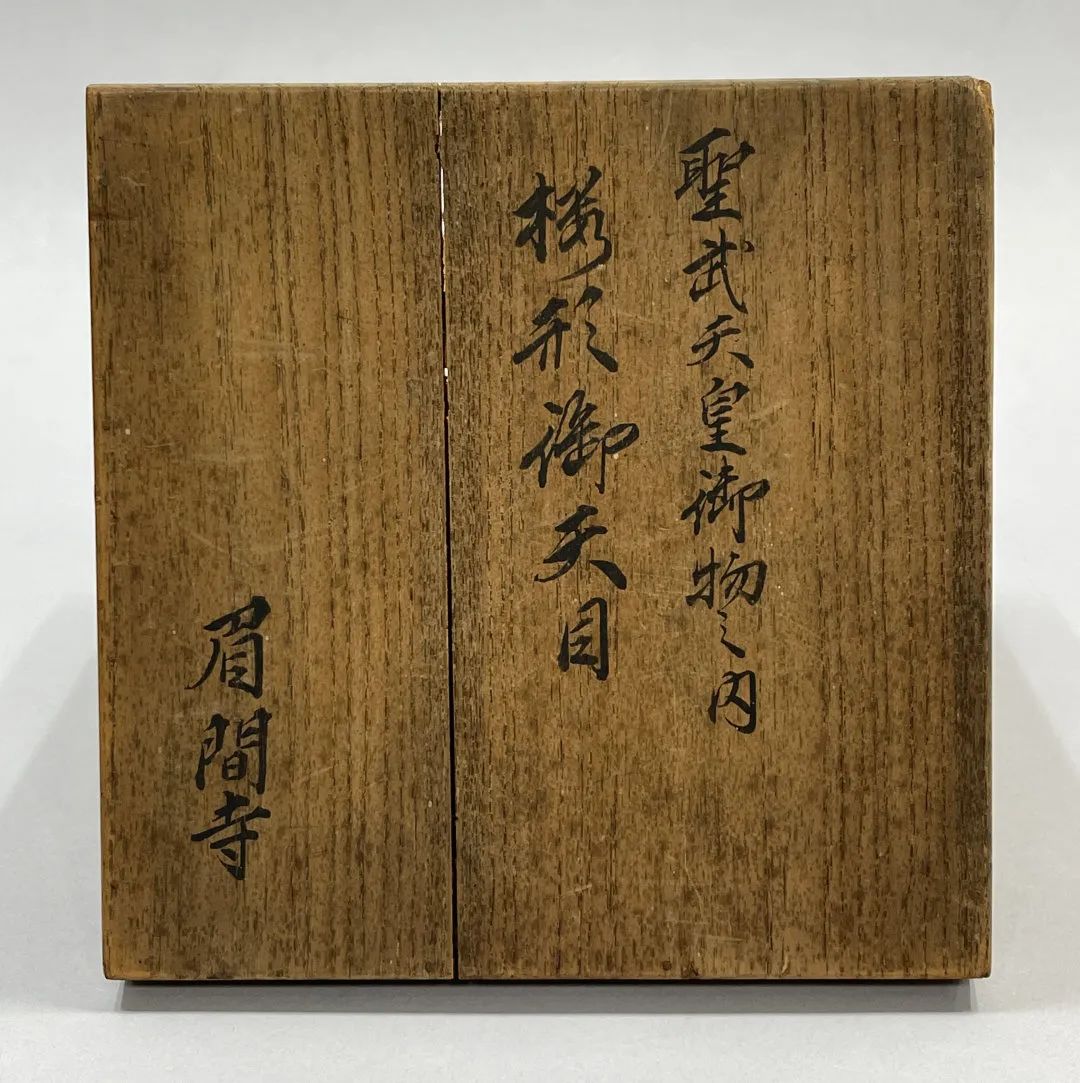 聖武天皇御物之内
桜形御天目
眉間寺